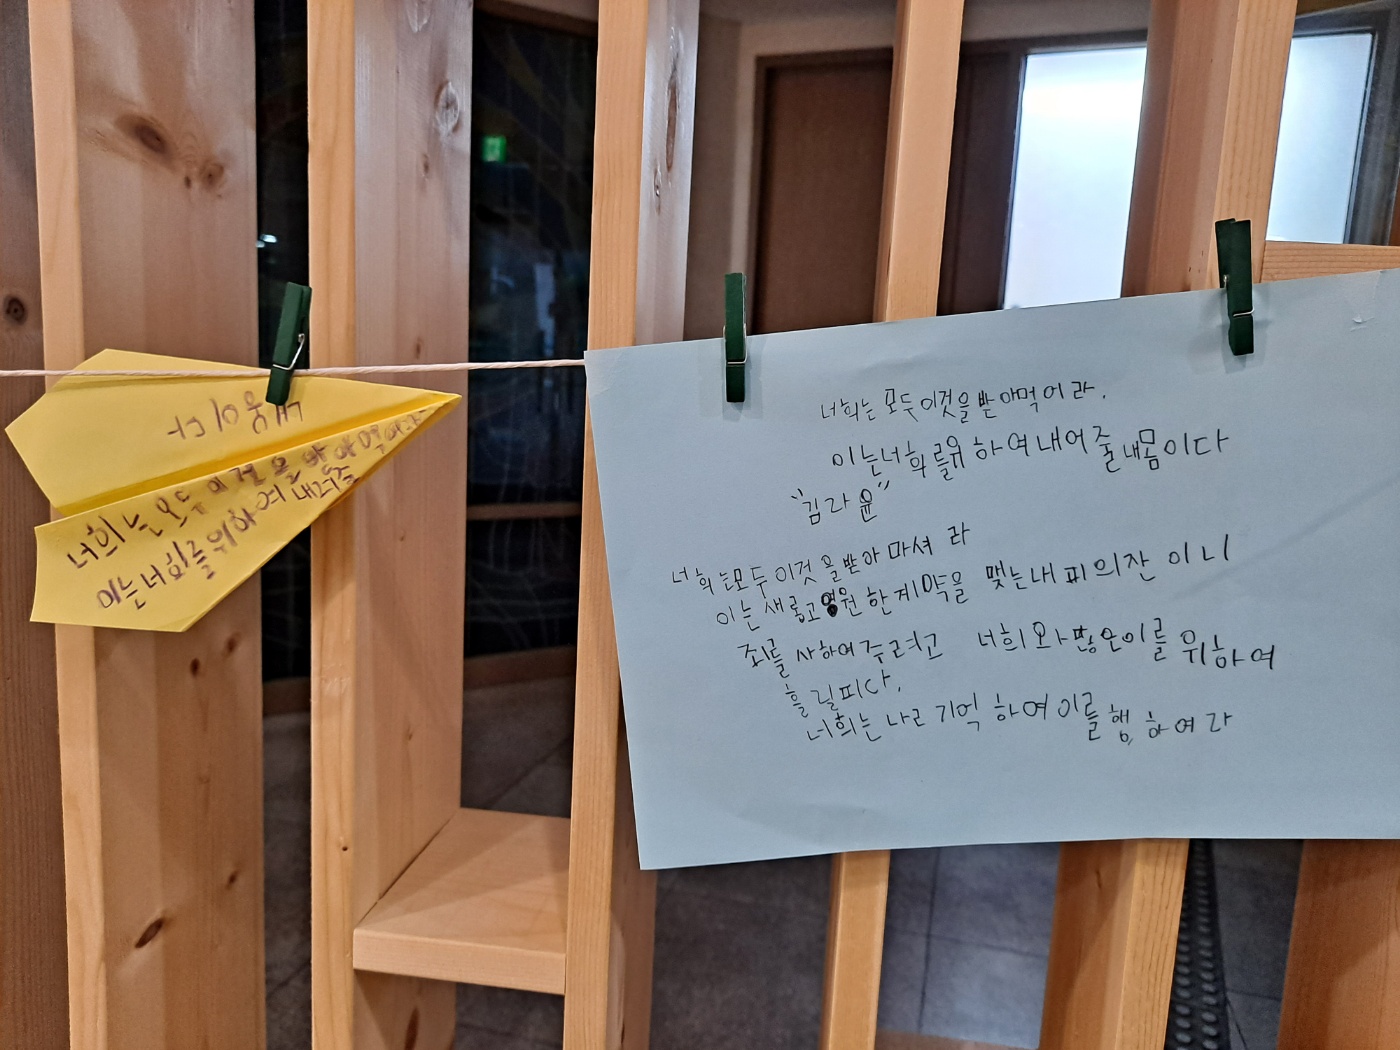 내몸이다
너희는 모두 이것을 받아 먹어라
이는 너희를 위하여 내어줄
너희는 모두 이것을 받아먹어라.
이는너희를유하여내어줄내몸이다
"김라윤"
너희는모두이것을받아마셔라
이는새롭고영원한계약을 맺는내피의잔이니
죄를 사하여주려고 너희와많은이를 위하여
흘릴피다.
너희는 나르 기억하여이를행하여라